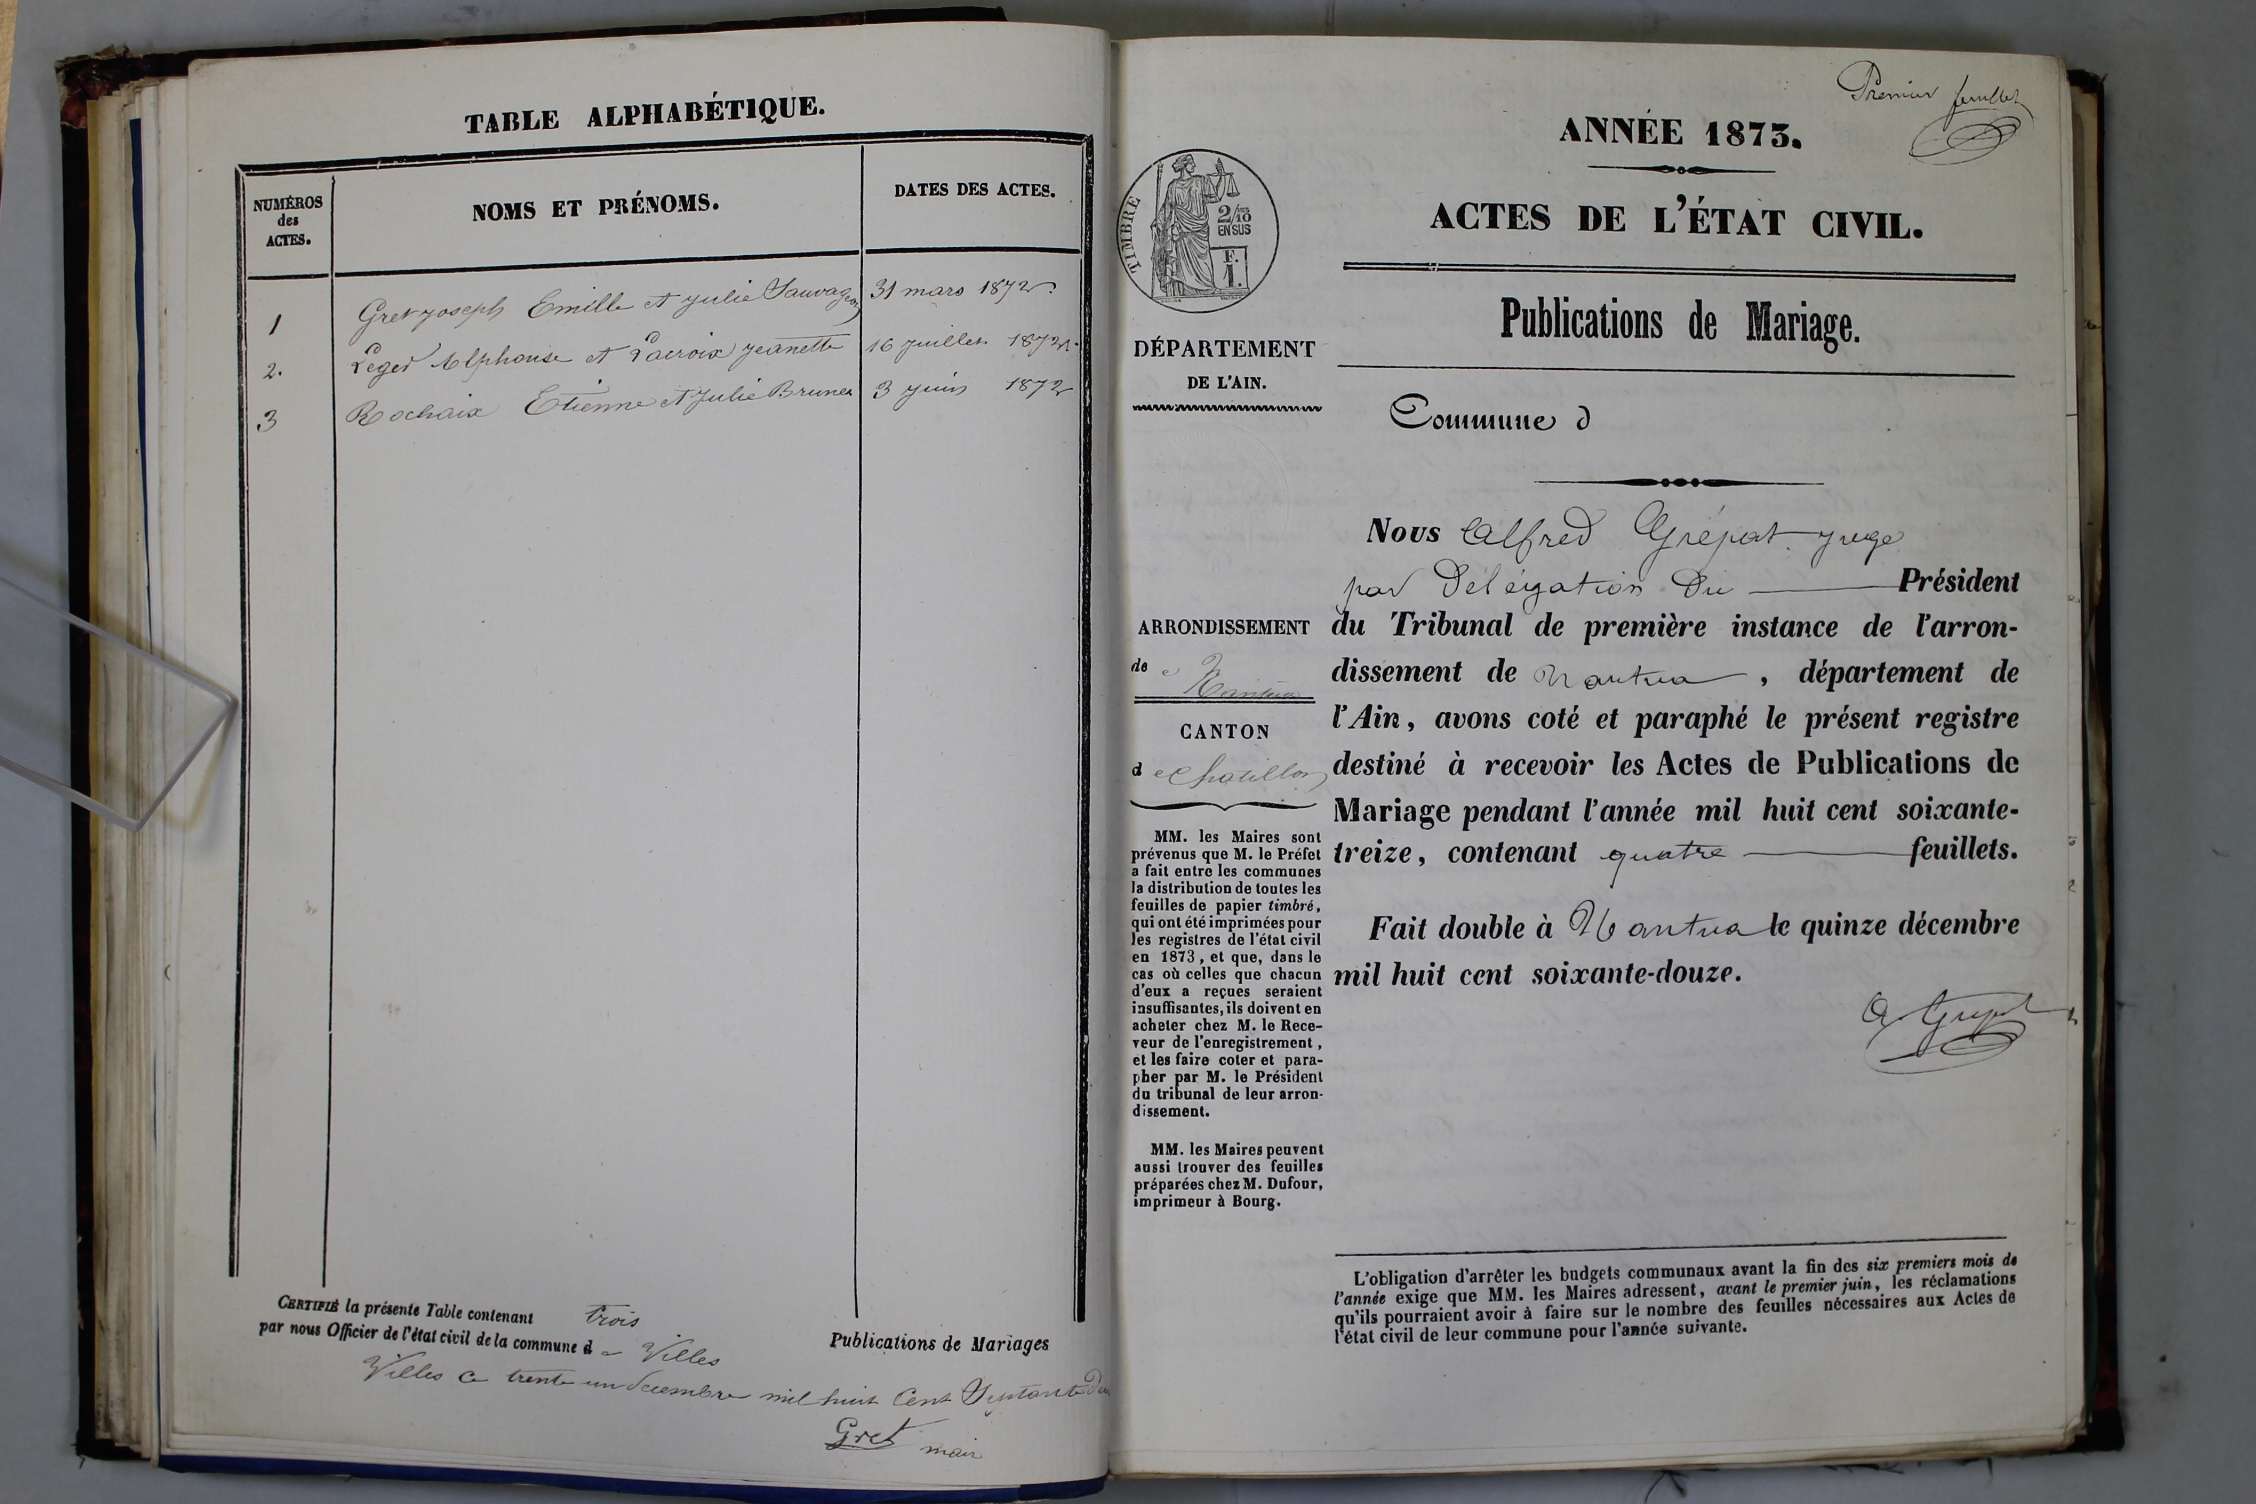 TABLE ALPHABÉTIQUE.
NUMÉROS
des
ACTES.
NOMS ET PRÉNOMS.
DATES DES ACTES.
1 Gret Joseph Emille et Julie Sauvageon 31 mars 1872.
2. Leger Alphonse et Lacroix Jeanette 16 juillet 1872.
3 Rochaix Etienne et Julie Brunet 3 juin 1872
CERTIFIÉ la présente Table contenant trois Publications de Mariages
par nous Officier de l'état civil de la commune de Villes
Villes ce trente un decembre mil huit Cent Septante Deux
Gret maire
Premier feuillet
ANNÉE 1873.
ACTES DE L'ÉTAT CIVIL.
Publications de Mariage.
TIMBRE
2/10
EN SUS
F.
1.
DÉPARTEMENT
DE L'AIN.
ARRONDISSEMENT
de Nantua
CANTON
de Chatillon
MM. les Maires sont
prévenus que M. le Préfet
a fait entre les communes
la distribution de toutes les
feuilles de papier timbré,
qui ont été imprimées pour
les registres de l'état civil
en 1873, et que, dans le
cas où celles que chacun
d'eux a reçues seraient
insuffisantes, ils doivent en
acheter chez M. le Rece-
veur de l'enregistrement,
et les faire coter et para-
pher par M. le Président
du tribunal de leur arron-
dissement.
MM. les Maires peuvent
aussi trouver des feuilles
préparées chez M. Dufour,
imprimeur à Bourg.
Commune d
Nous Alfred Grépat juge
par Délégation du Président
du Tribunal de première instance de l'arron-
dissement de Nantua, département de
l'Ain, avons coté et paraphé le présent registre
destiné à recevoir les Actes de Publications de
Mariage pendant l'année mil huit cent soixante-
treize, contenant quatre feuillets.
Fait double à Nantua le quinze décembre
mil huit cent soixante-douze.
A. Grépat
L'obligation d'arrêter les budgets communaux avant la fin des six premiers mois de
l'année exige que MM. les Maires adressent, avant le premier juin, les réclamations
qu'ils pourraient avoir à faire sur le nombre des feuilles nécessaires aux Actes de
l'état civil de leur commune pour l'année suivante.